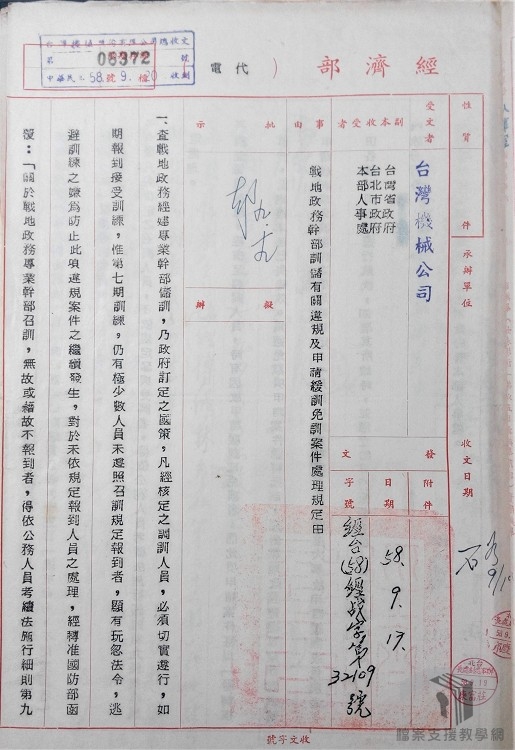 經濟部(代電)
05372
第 號
中華民國58.9.20收到
性質
件
承辦單位
收文日期
受文者
台灣機械公司
發文
附件
日期
58. 9. 17.
字號
經台(58)經戰字第32109號
副本收受者
台灣省政府
台北市政府
本部人事處
事由
戰地政務幹部訓儲有關違規及申請緩訓免訓案件處理規定由
批示
擬辦
一、查戰地政務經建專業幹部儲訓,乃政府訂定之國策,凡經核定之調訓人員,必須切實遵行,如
期報到接受訓練,惟第七期訓練,仍有極少數人員未遵照召訓規定報到者,顯有玩忽法令,逃
避訓練之嫌為防止此項違規案件之繼續發生,對於未依規定報到人員之處理,經釋准國防部函
覆:「關於戰地政務專業幹部召訓,無故或藉故不報到者,得依公務人員考績法施行細則第九
收文字號
檔案支援教學網